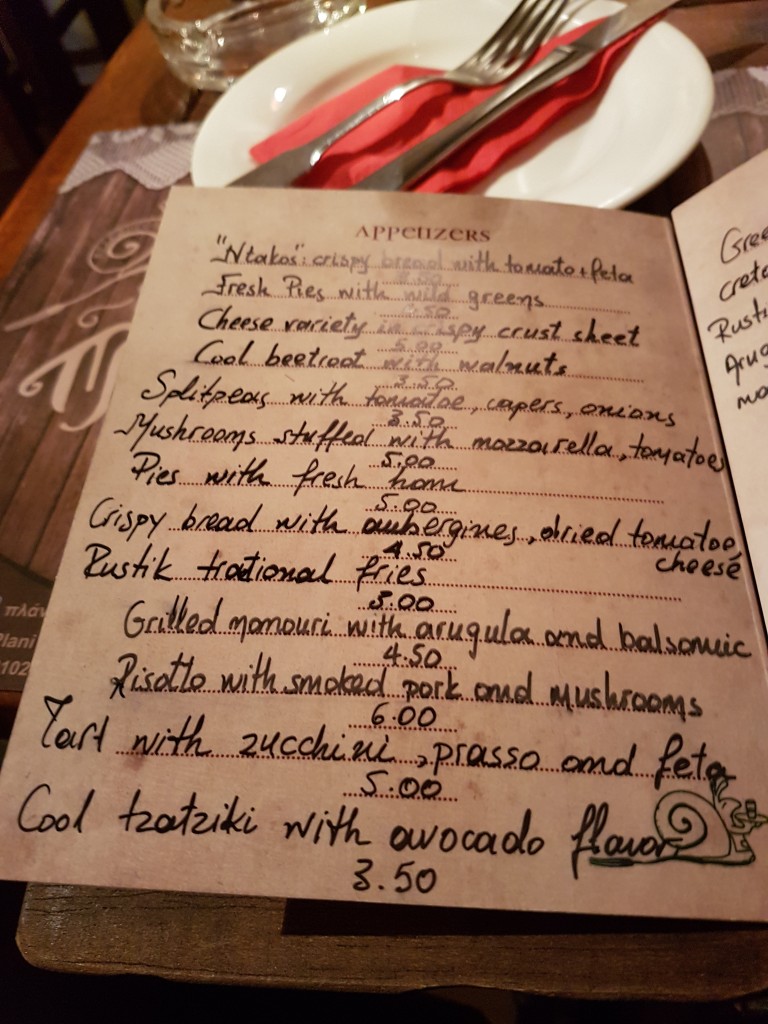 APPETIZERS
"Ntakos": crispy bread with tomato + feta
Fresh Pies with wild greens
3.50
Cheese variety in crispy crust sheet
5.00
Cool beetroot with walnuts
3.50
Splitpeas with tomatoe, capers, onions
3.50
Mushrooms stuffed with mozzarella, tomatoe
5.00
Pies with fresh ham
5.00
Crispy bread with aubergines, dried tomatoe,
cheese
4.50
Rustik trational fries
3.00
Grilled manouri with arugula and balsamic
4.50
Risotto with smoked pork and mushrooms
6.00
Tart with zucchini, prasso and feta
5.00
Cool tzatziki with avocado flavor
3.50
Gree
crete
Rusti
Arug
πλάν
Plani